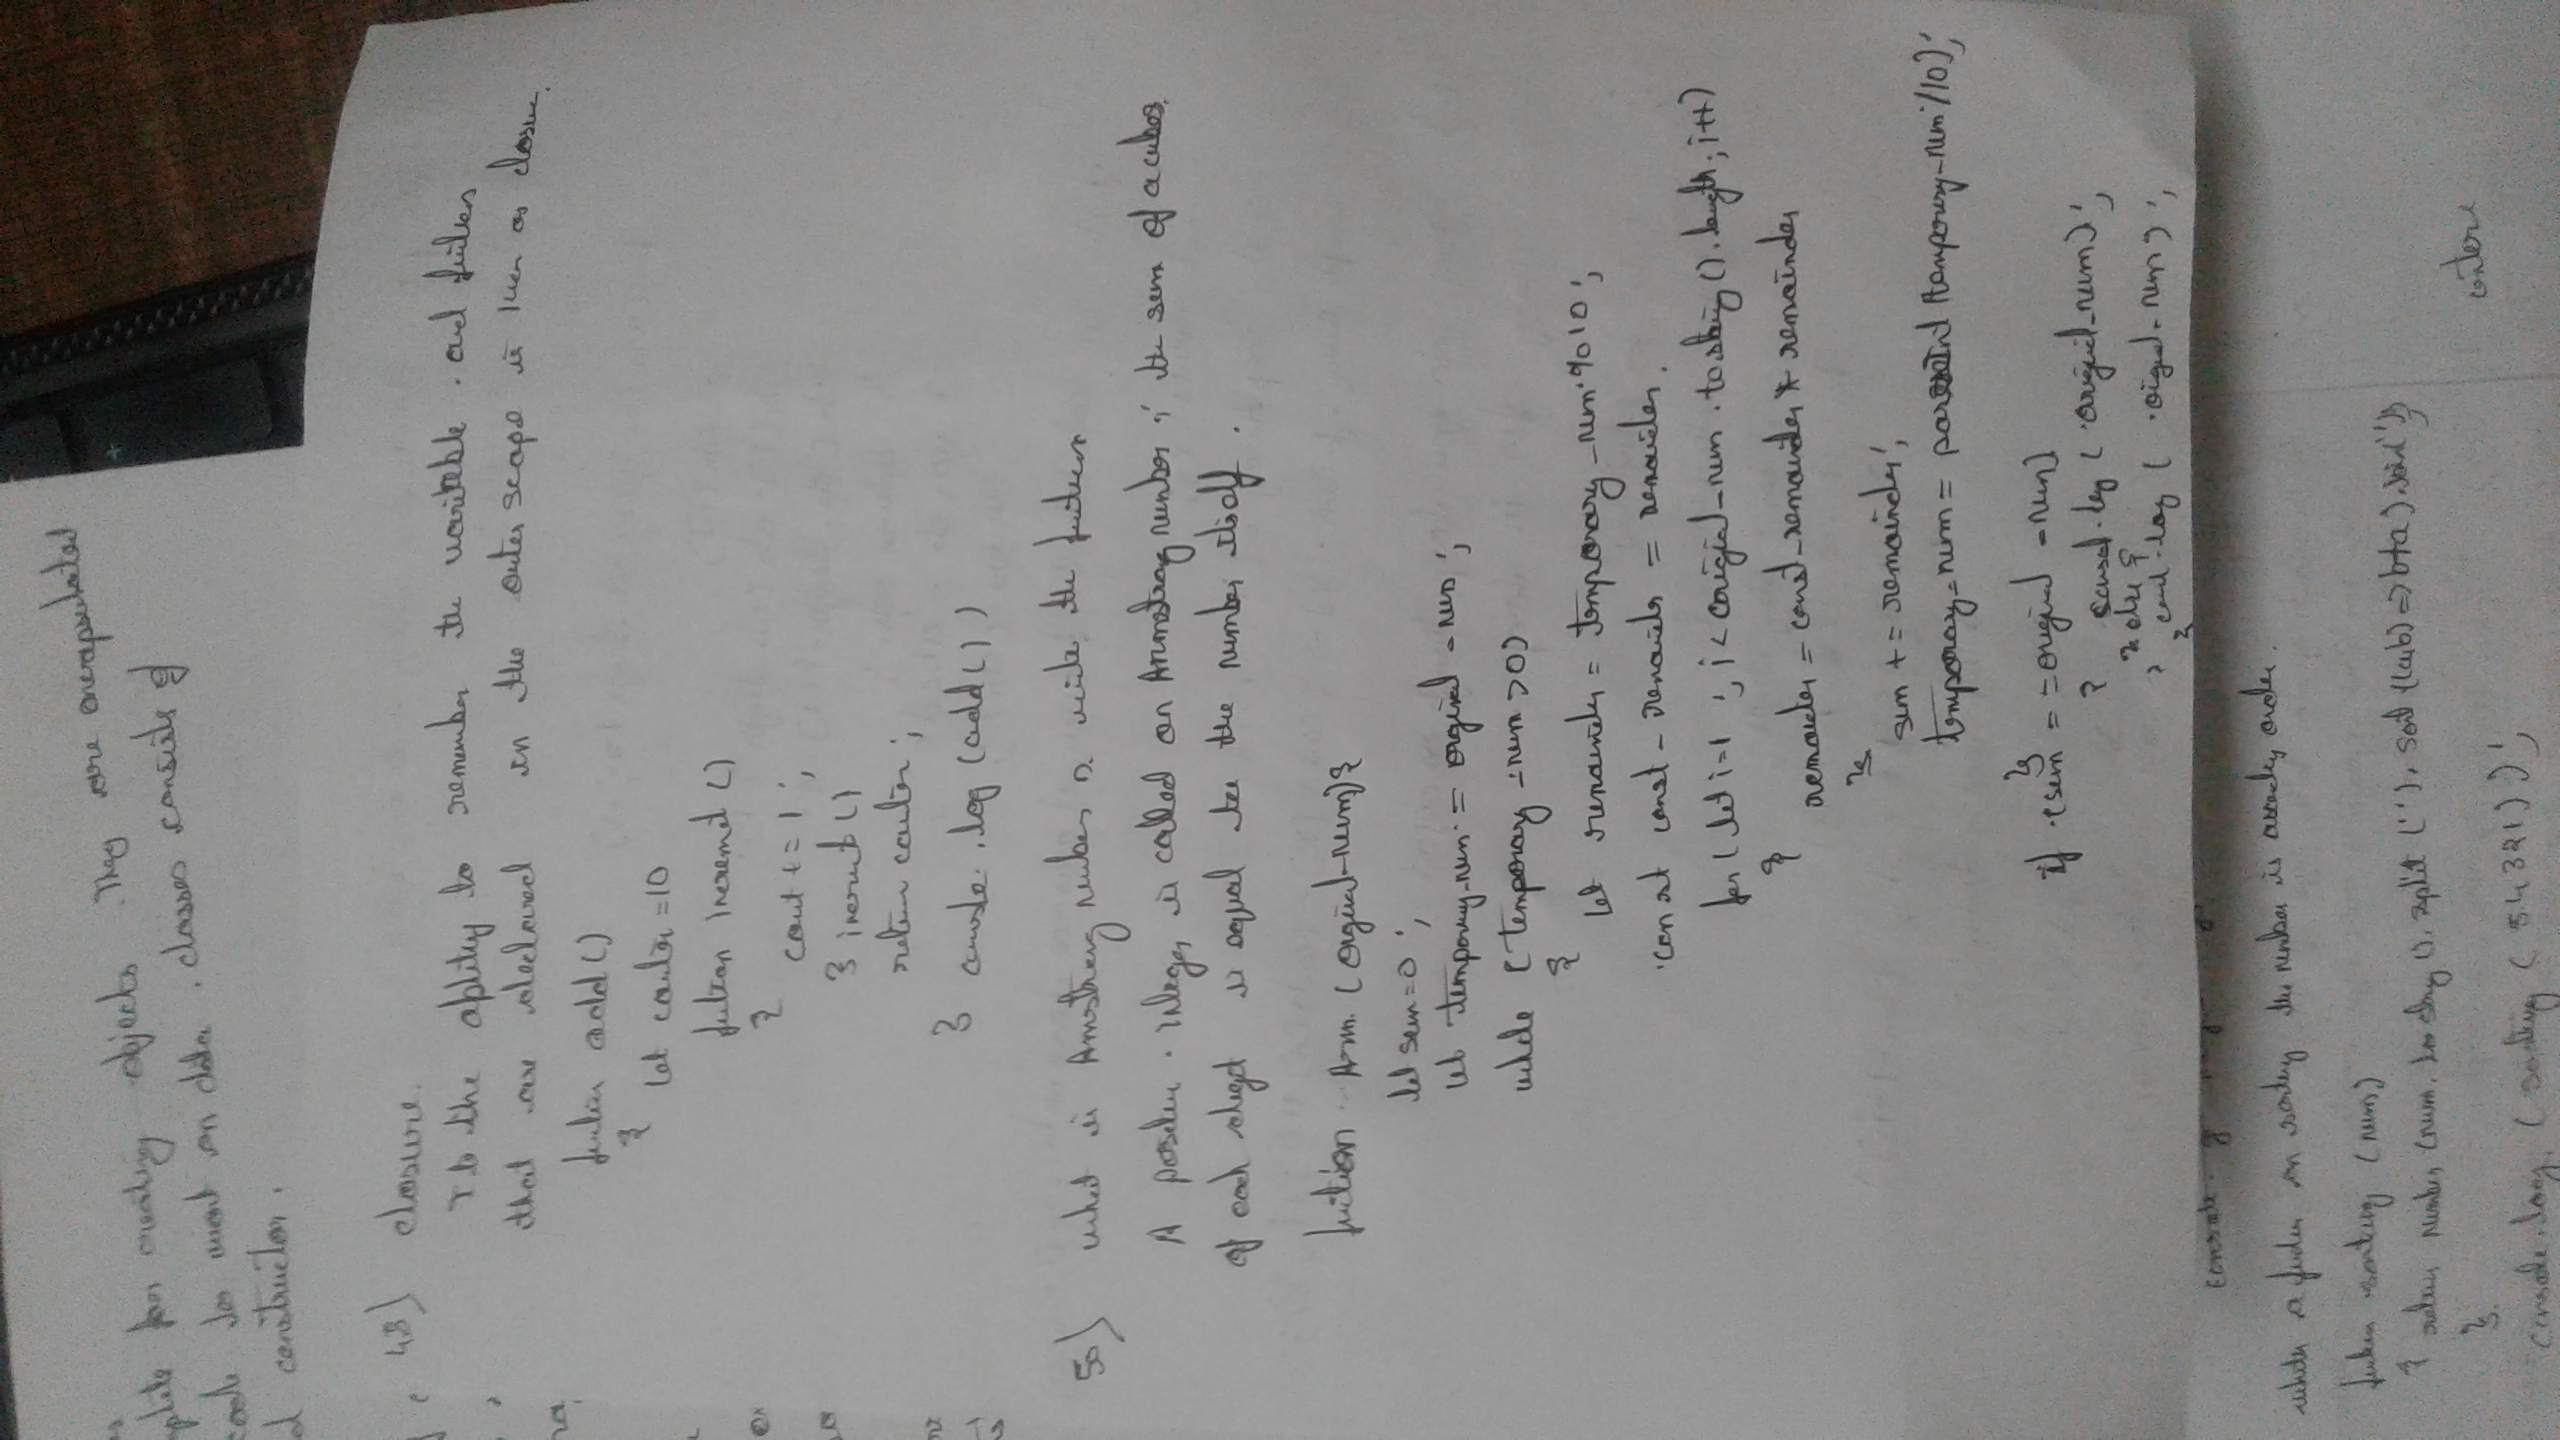 plate for creating objects. They are encapsulated
code to want on data. classes consists of
d constructor.
48) closure.
It the ablity to remember the varitable. and
that are declared in the outer scope is as closure.
add()
{
let couter =10
futian increment ()
{
cout += 1;
}
return couter;
} console.log (add())
50) what is Armstrong number write the
A integer is called an Armstrong number if the sum of a cubes
of each digit is equal to the number itself.
fuction Arm. (orginal-num){
let sum=0;
let temporary-num = orginal-num;
while (temporary-num >0)
{
let remainder = temporary_num % 10;
const const-remainder = remainder.
for (let i=1; i< original-num.tostring().length; i++)
{
remainder = const-remainder * remainder
}
sum += remainder;
temporary-num = parseInt (temporary-num /10);
}
if (sum = = original -num)
{ .log (original-num);
} else {
.log ( -num);
}
console.
write a on sorting the number is ascending order.
sorting (num)
{ return number (num. to string (). split (''). sort ((a,b) => b+a).join('')
}
console.log. (sorting (54321));